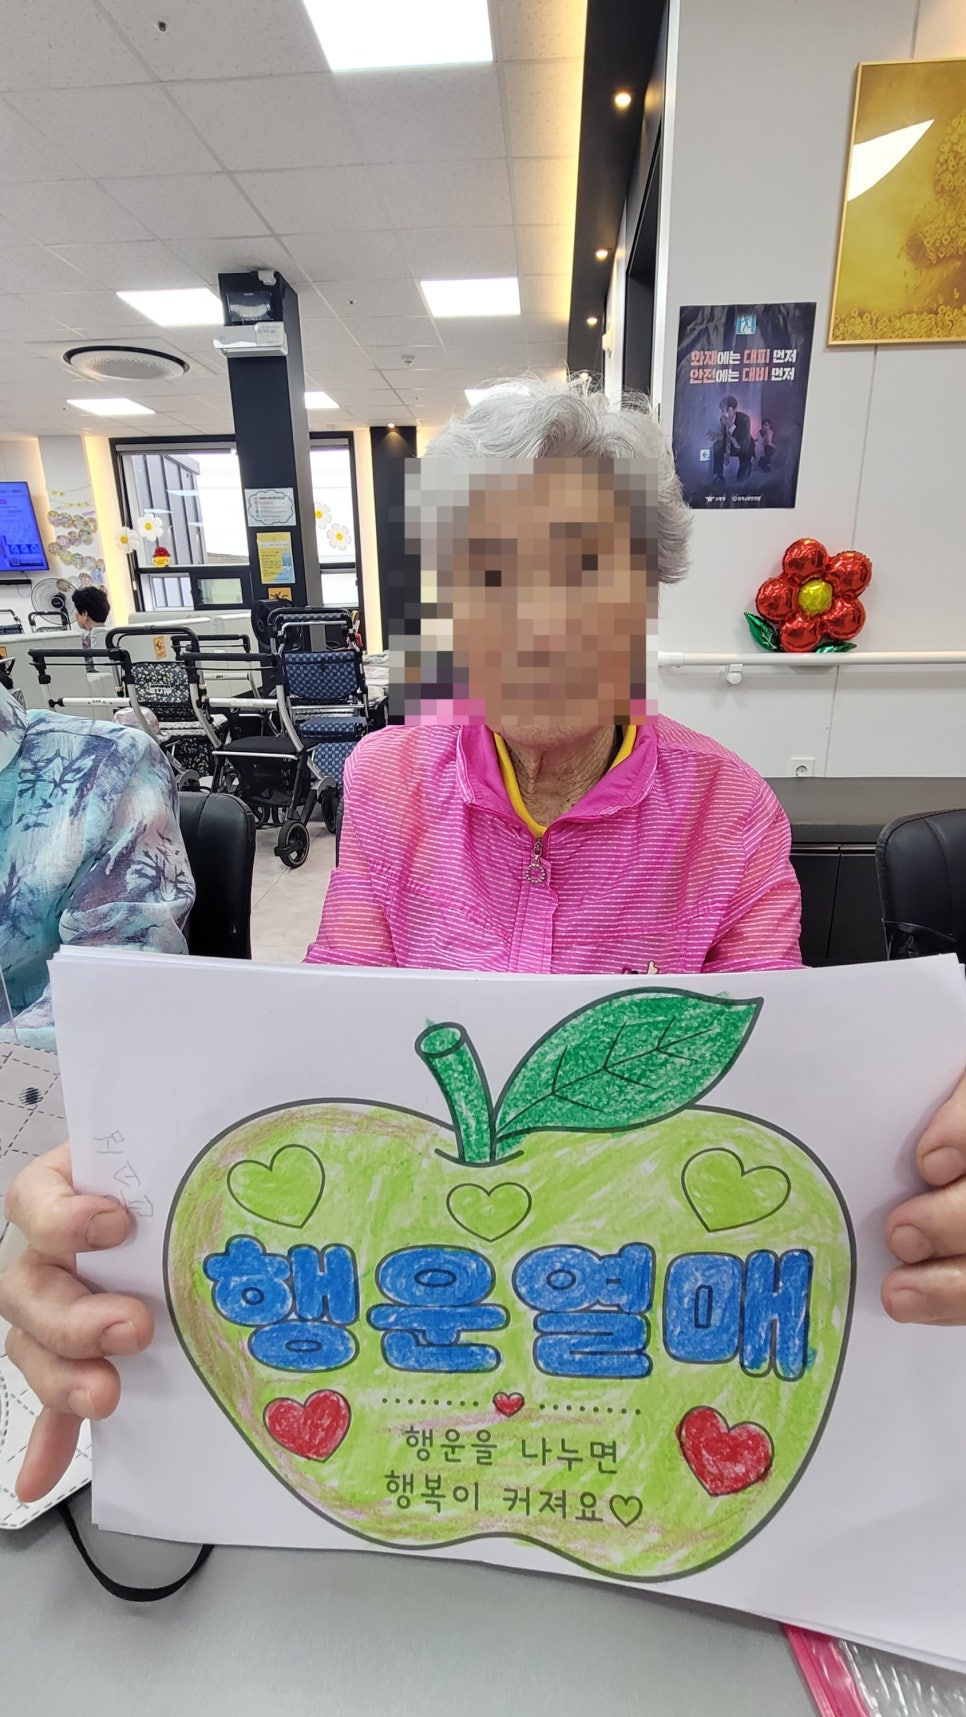 화재에는 대피 먼저
안전에는 대비 먼저
행운열매
행운을 나누면
행복이 커져요♡